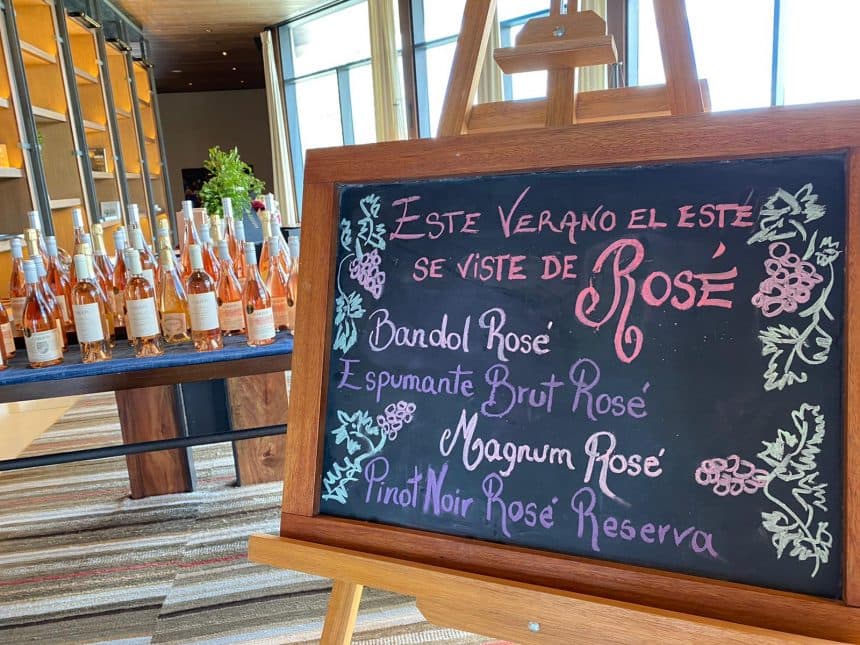 Este Verano el este
se viste de Rosé
Bandol Rosé
Espumante Brut Rosé
Magnum Rosé
Pinot Noir Rosé Reserva